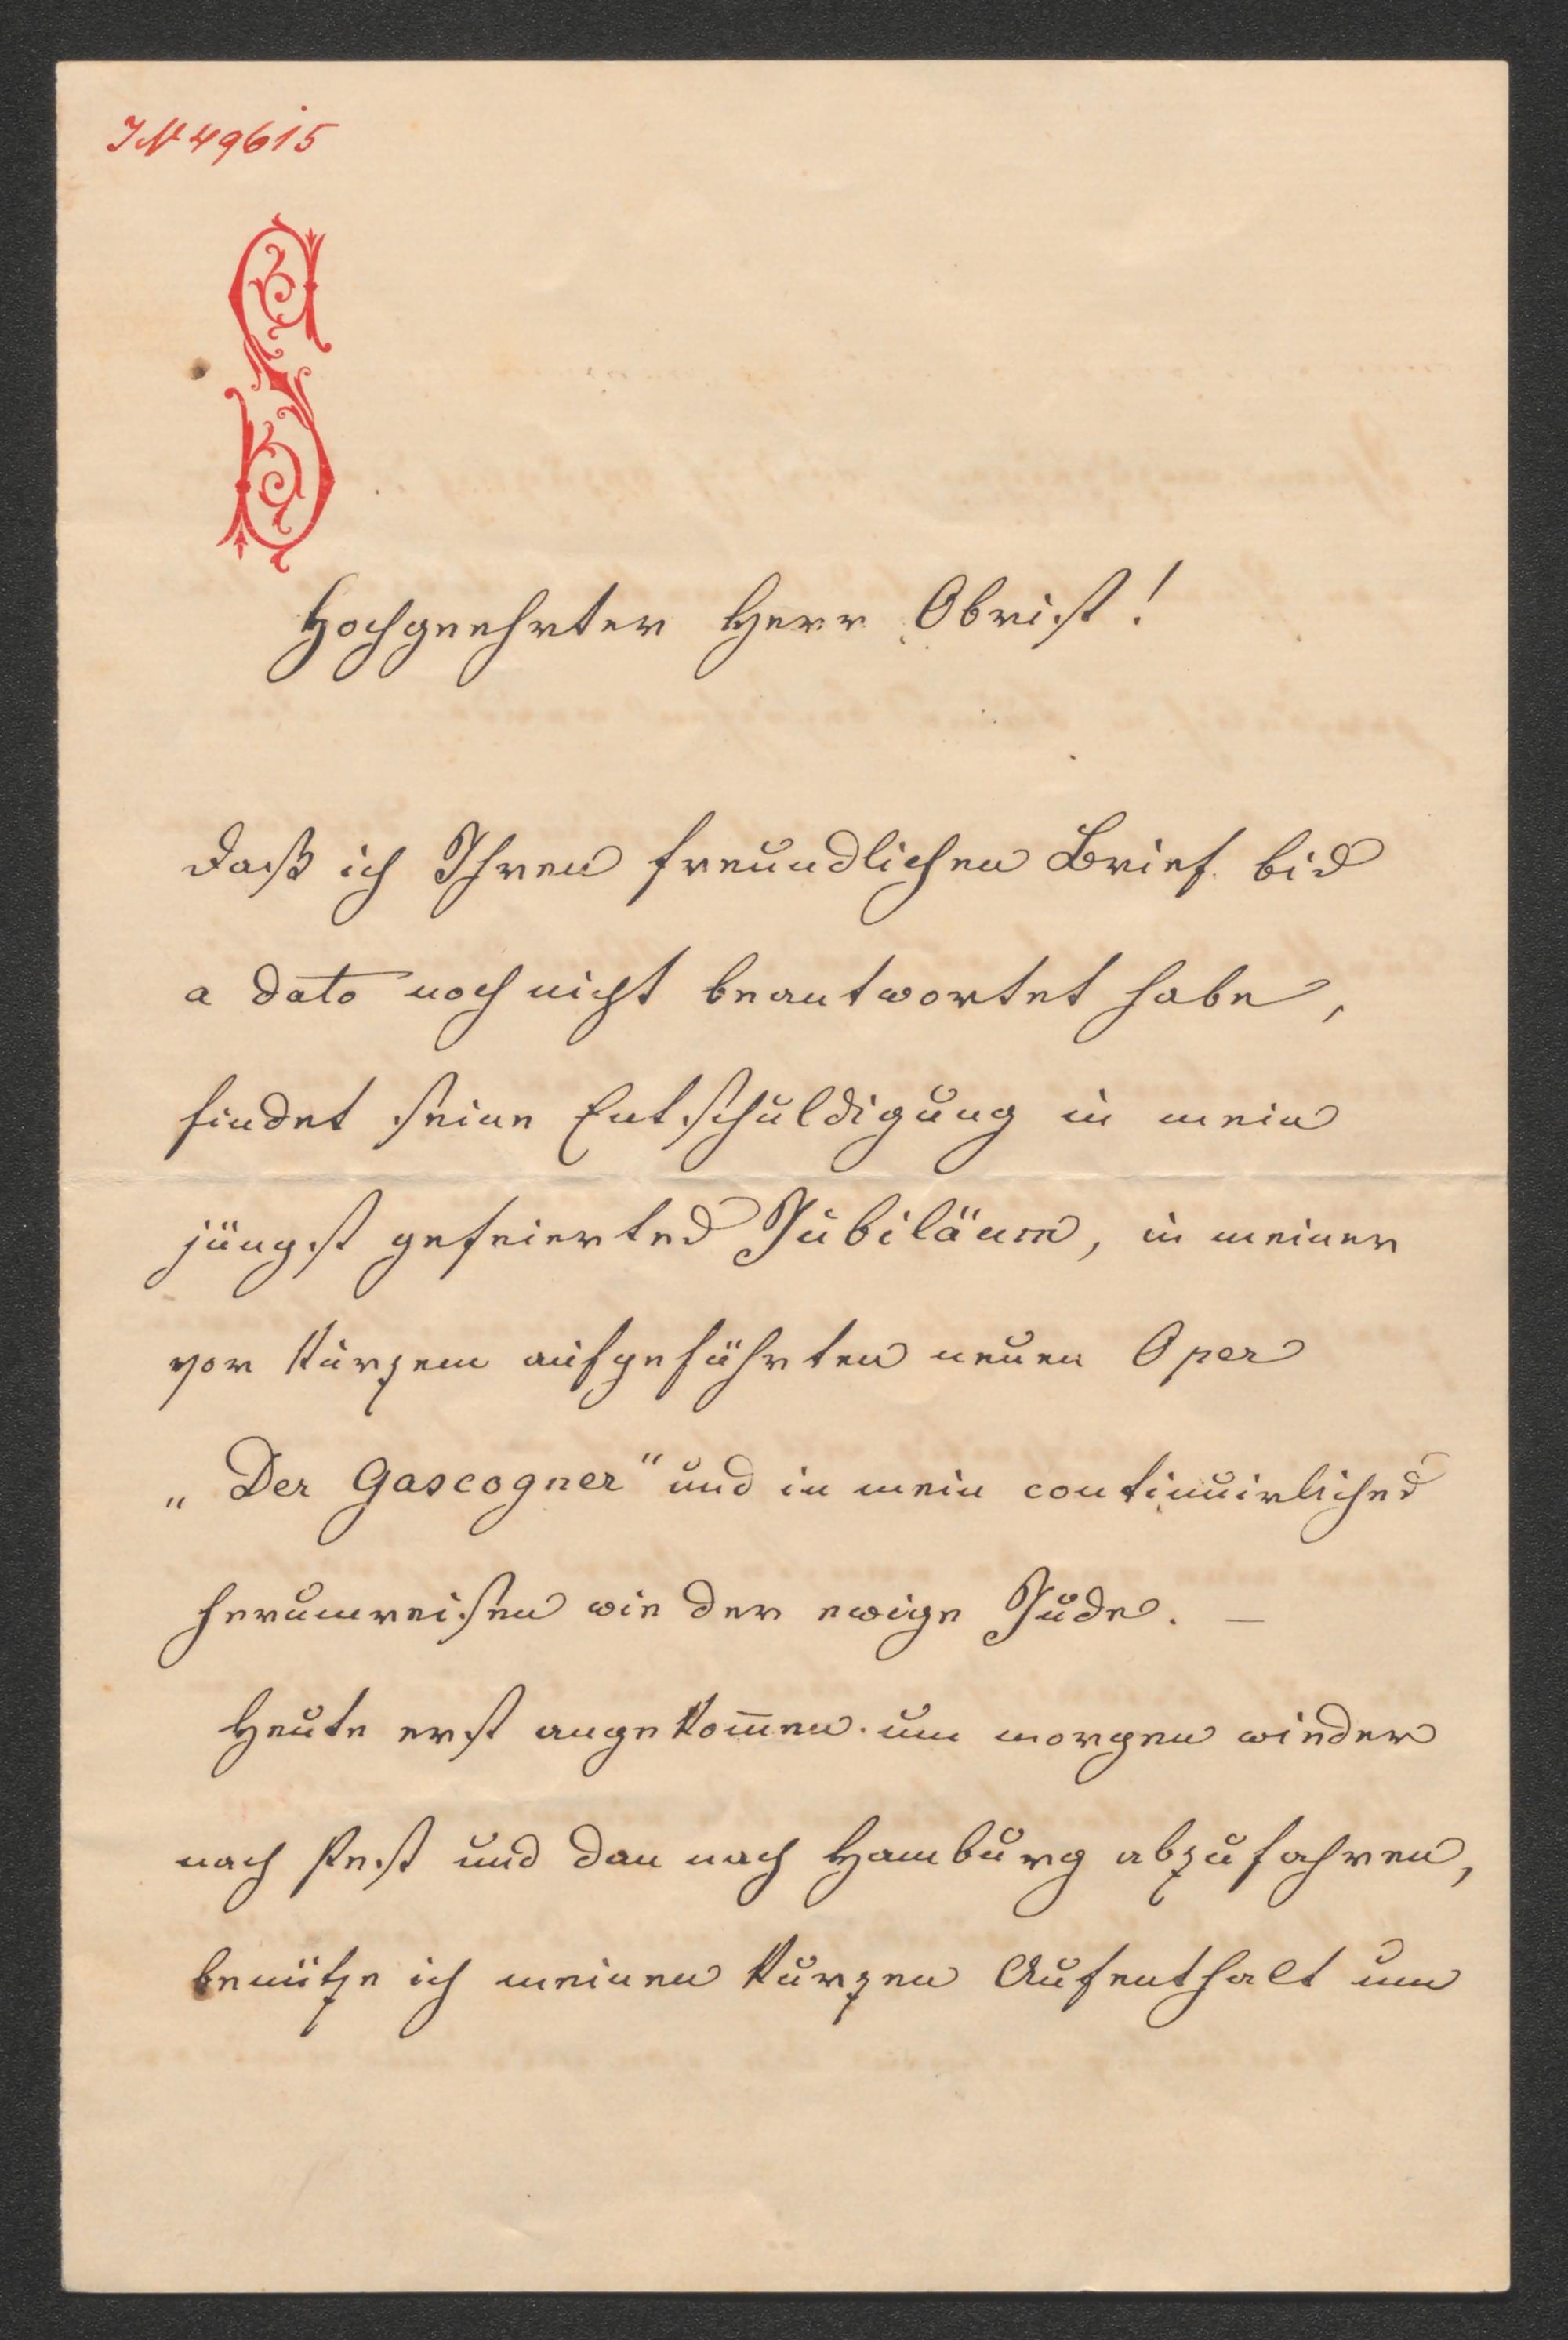 IN 49615
Hochgeehrter Herr Obrist!
Daß ich Ihren freundlichen Brief bis
a dato noch nicht beantwortet habe,
findet seine Entschuldigung in mein
jüngst gefeiertes Jubiläum, in meiner
vor kurzem aufgeführten neuen Oper
„Der Gascogner“ und in mein continuirliches
herumreisen wie der ewige Jude. —
Heute erst angekom̅en um morgen wieder
nach Pest und dan nach Hamburg abzufahren,
benütze ich meinen kurzen Aufenthalt um